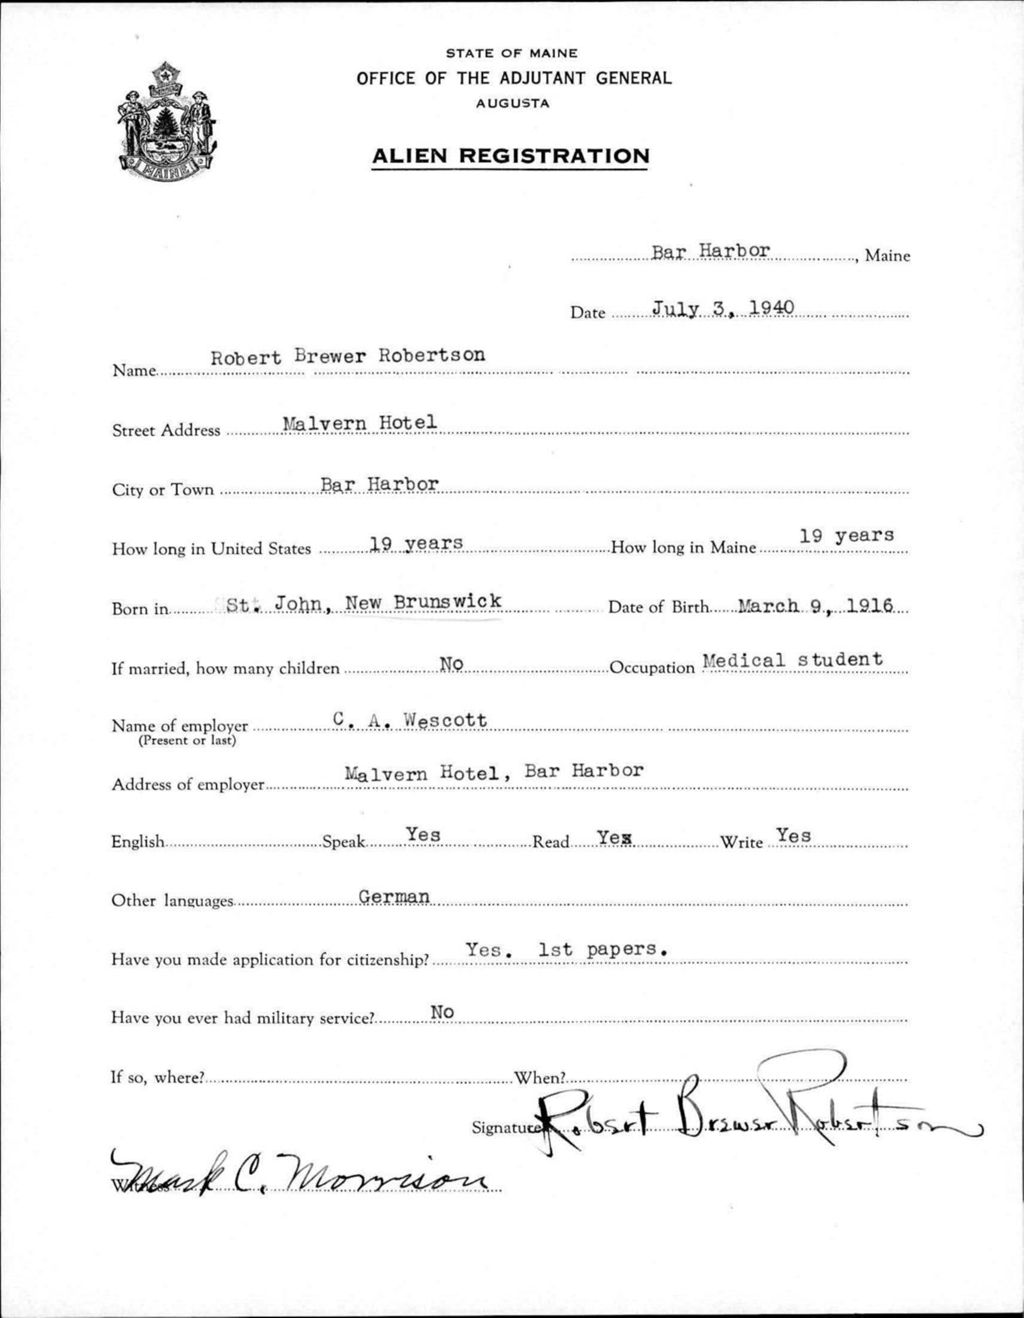 STATE OF MAINE
OFFICE OF THE ADJUTANT GENERAL
AUGUSTA
ALIEN REGISTRATION
MAINE
Bar Harbor, Maine
Date July 3, 1940
Name Robert Brewer Robertson
Street Address Malvern Hotel
City or Town Bar Harbor
How long in United States 19 years How long in Maine 19 years
Born in St. John, New Brunswick Date of Birth March 9, 1916
If married, how many children No Occupation Medical student
Name of employer C. A. Wescott
(Present or last)
Address of employer Malvern Hotel, Bar Harbor
English Speak Yes Read Yes Write Yes
Other languages German
Have you made application for citizenship? Yes. 1st papers.
Have you ever had military service? No
If so, where? When?
Signature Robert Brewer Robertson
Witness Mark C. Morrison